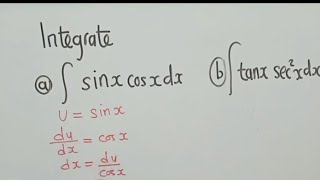 Integrate
ⓐ ∫ sinx cosx dx ⓑ ∫ tanx sec²x dx
U = sinx
du/dx = cosx
dx = du/cosx